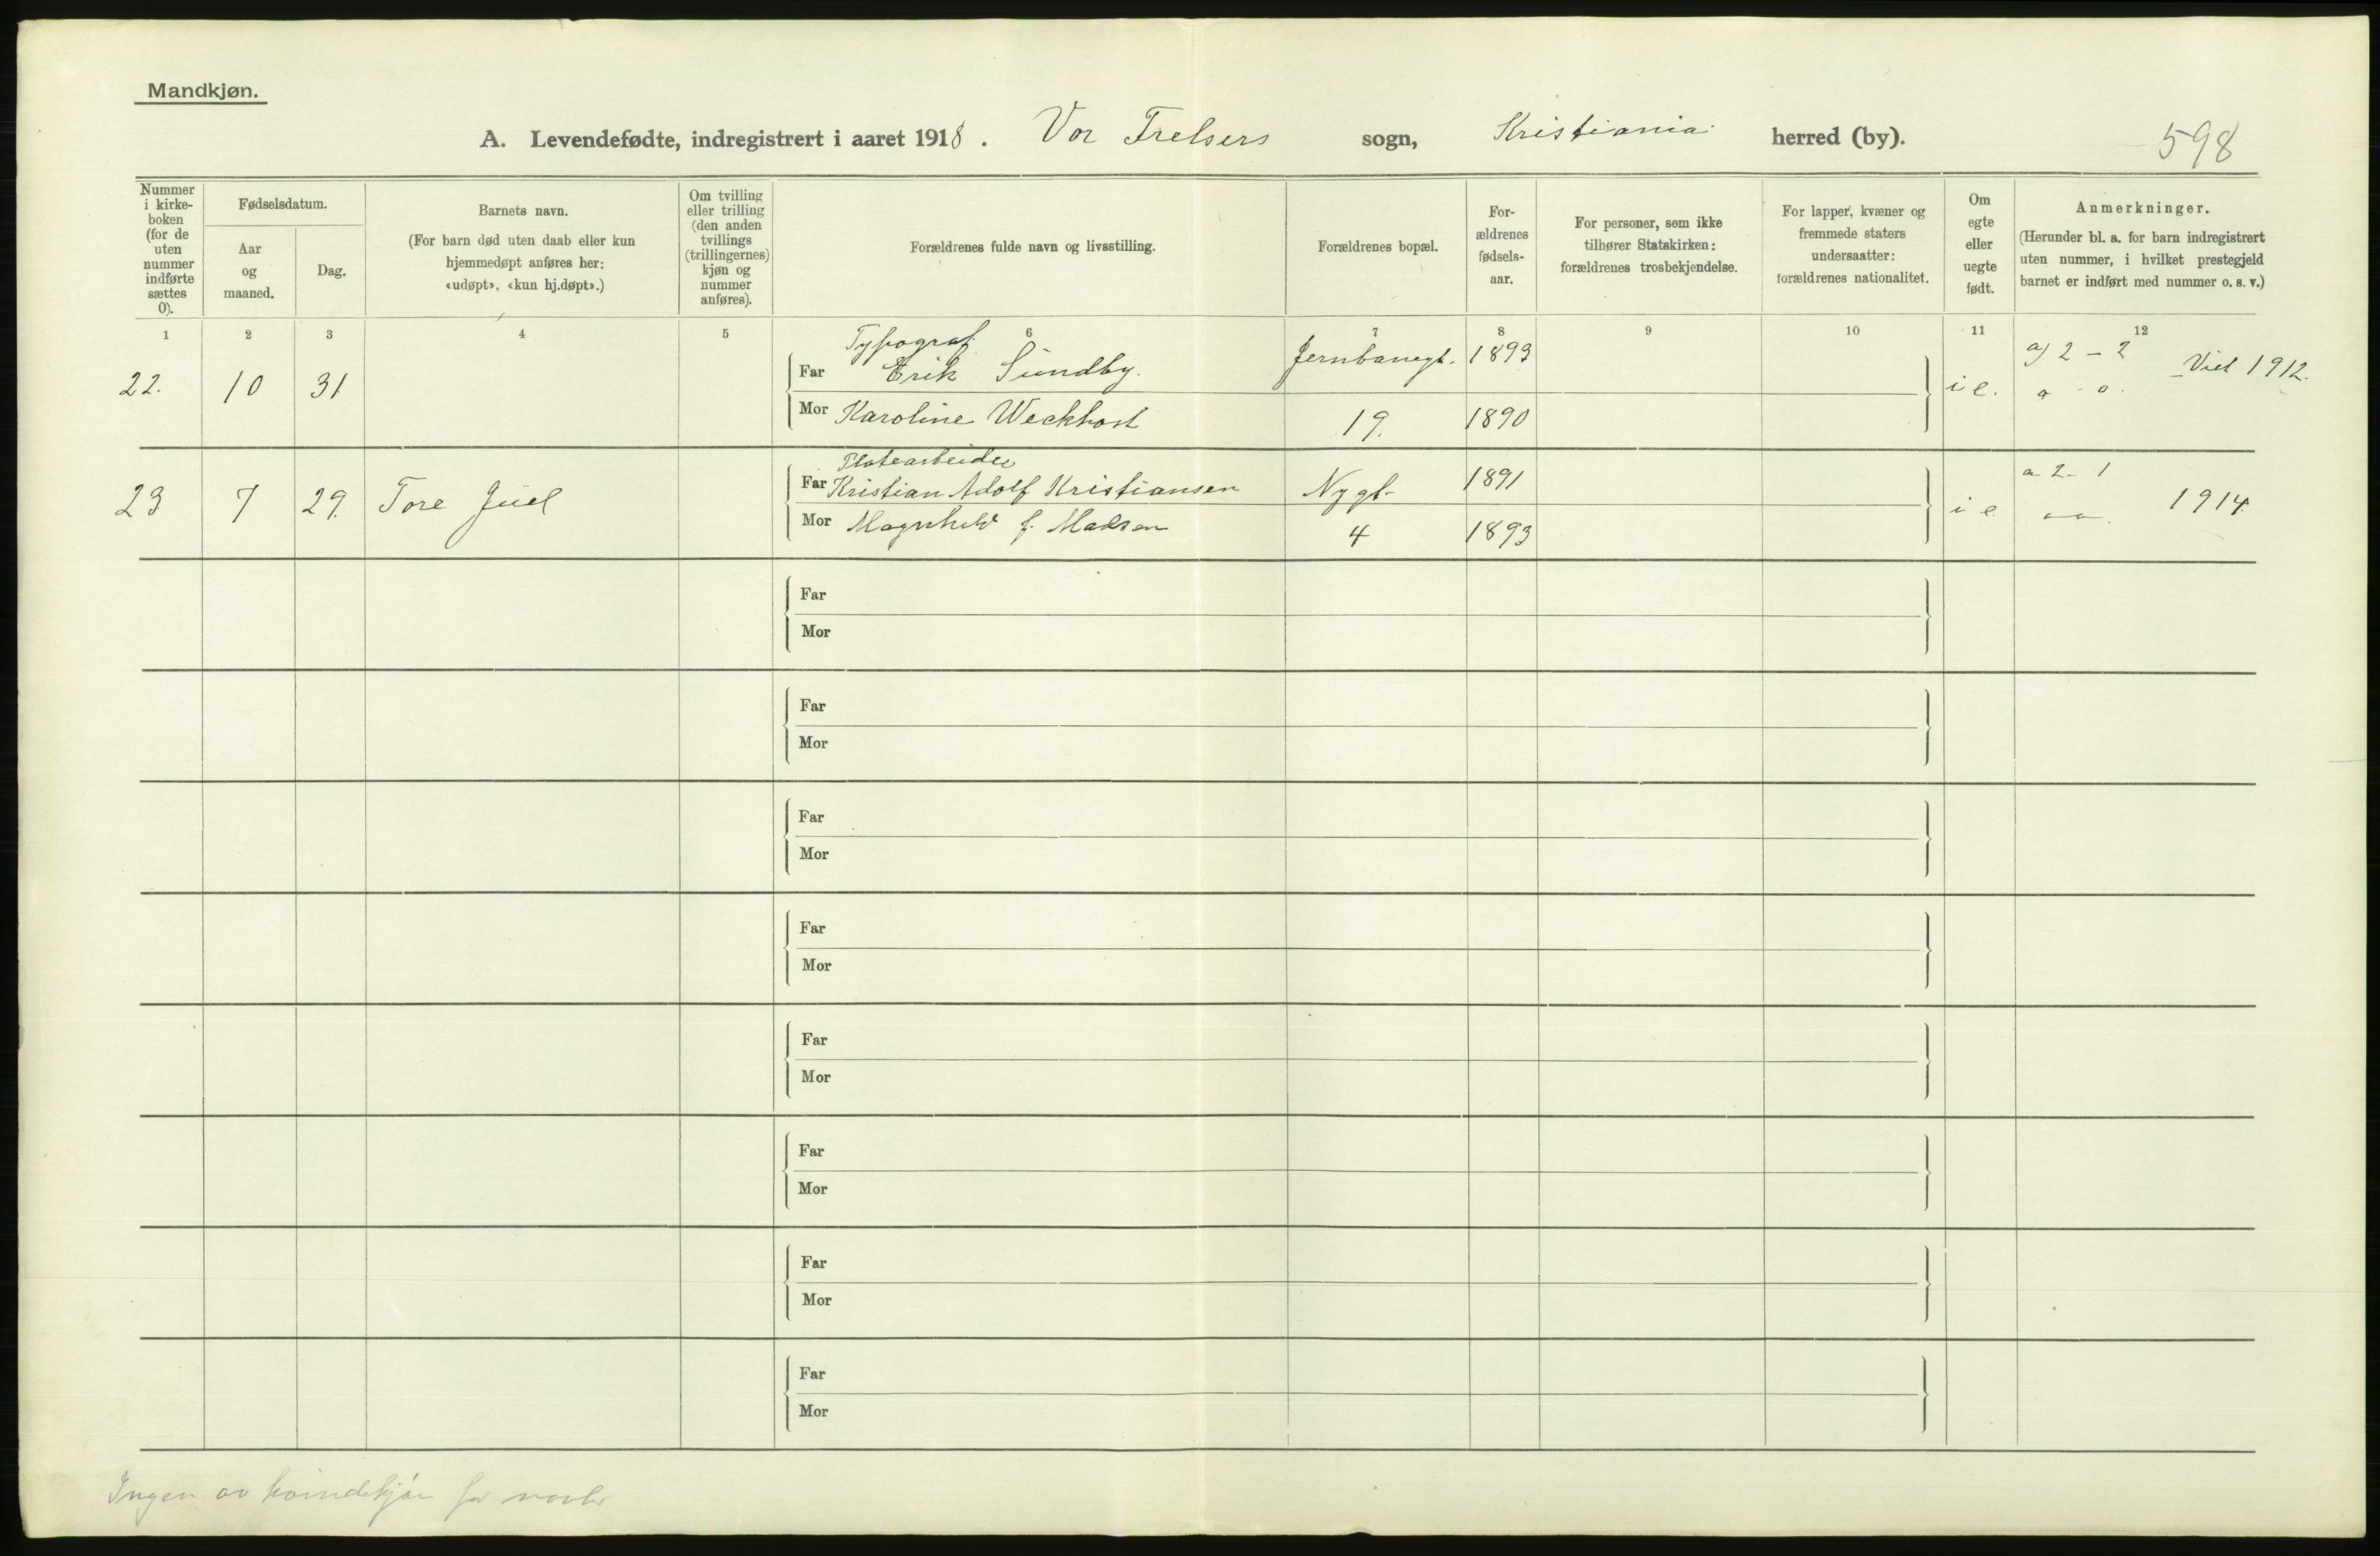 Mandkjøn.
A. Levendefødte, indregistrert i aaret 1918. Vor Frelsers sogn, Kristiania herred (by). 598
Nummer i kirke- boken (for de uten nummer indførte sættes 0).
Fødselsdatum.
Aar og maaned.
Dag.
Barnets navn.
(For barn død uten daab eller kun
hjemmedøpt anføres her:
«udøpt», «kun hj.døpt».)
Om tvilling
eller trilling
(den anden
tvillings
(trillingernes)
kjøn og
nummer
anføres).
Forældrenes fulde navn og livsstilling.
Forældrenes bopæl.
For-
ældrenes
fødsels-
aar.
For personer, som ikke
tilhører Statskirken:
forældrenes trosbekjendelse.
For lapper, kvæner og
fremmede staters
undersaatter:
forældrenes nationalitet.
Om
egte
eller
uegte
født.
Anmerkninger.
(Herunder bl. a. for barn indregistrert
uten nummer, i hvilket prestegjeld
barnet er indført med nummer o. s. v.)
1 2 3 4 5 6 7 8 9 10 11 12
Typograf
22. 10 31 Far Erik Sundby. Jernbanegt. 1893 i e. a) 2 - 2 Viet 1912.
Mor Karoline Weckhost 19. 1890 a - o.
Platearbeider
23 7 29. Tore Juel Far Kristian Adolf Kristiansen Nygt. 1891 i e a 2 - 1 1914.
Mor Magnhild f. Madsen 4 1893
Far
Mor
Far
Mor
Far
Mor
Far
Mor
Far
Mor
Far
Mor
Far
Mor
Far
Mor
Ingen av kvindekjøn